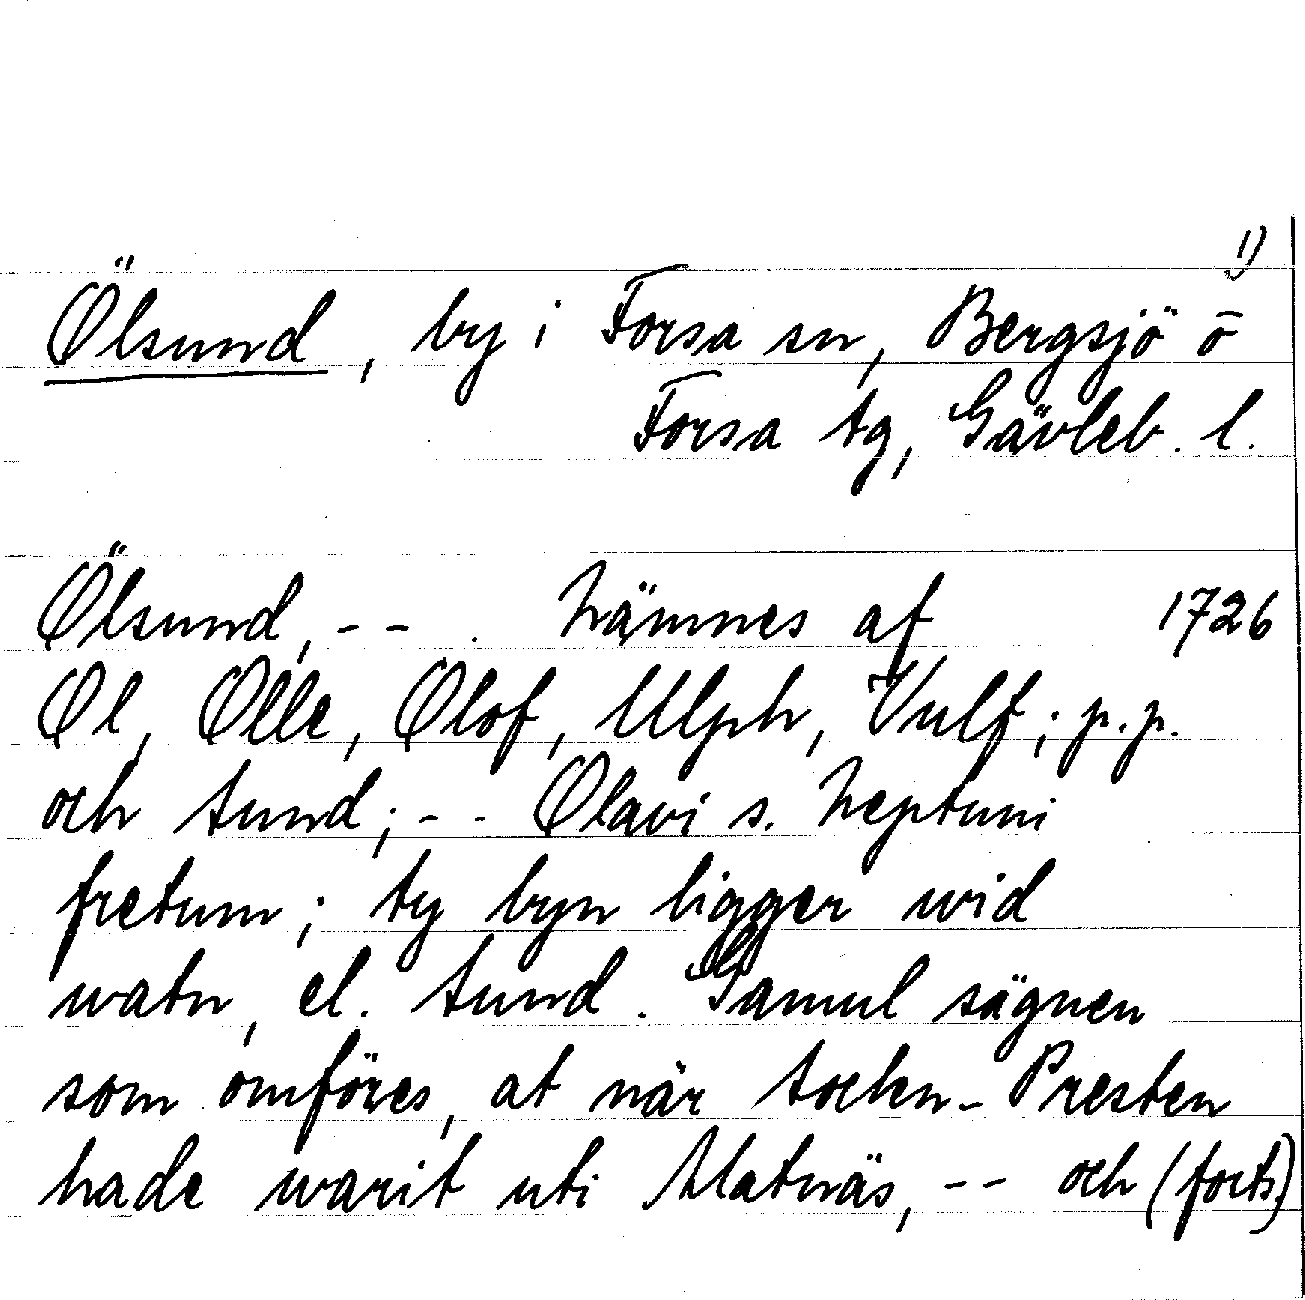 1)
Ölsund, by i Forsa sn, Bergsjö o
Forsa tg, Gävleb. l.
Ölsund, -- . Nämnes af 1726
Ol, Olle, Olof, Ulph, Vulf; p.p.
och sund; -- Olavi s. Neptuni
fretum; ty byn ligger wid
watn, el. sund. Gamul sägnen
som omföres, at när Sochn-Presten
hade warit uti Matnäs, -- och (forts)